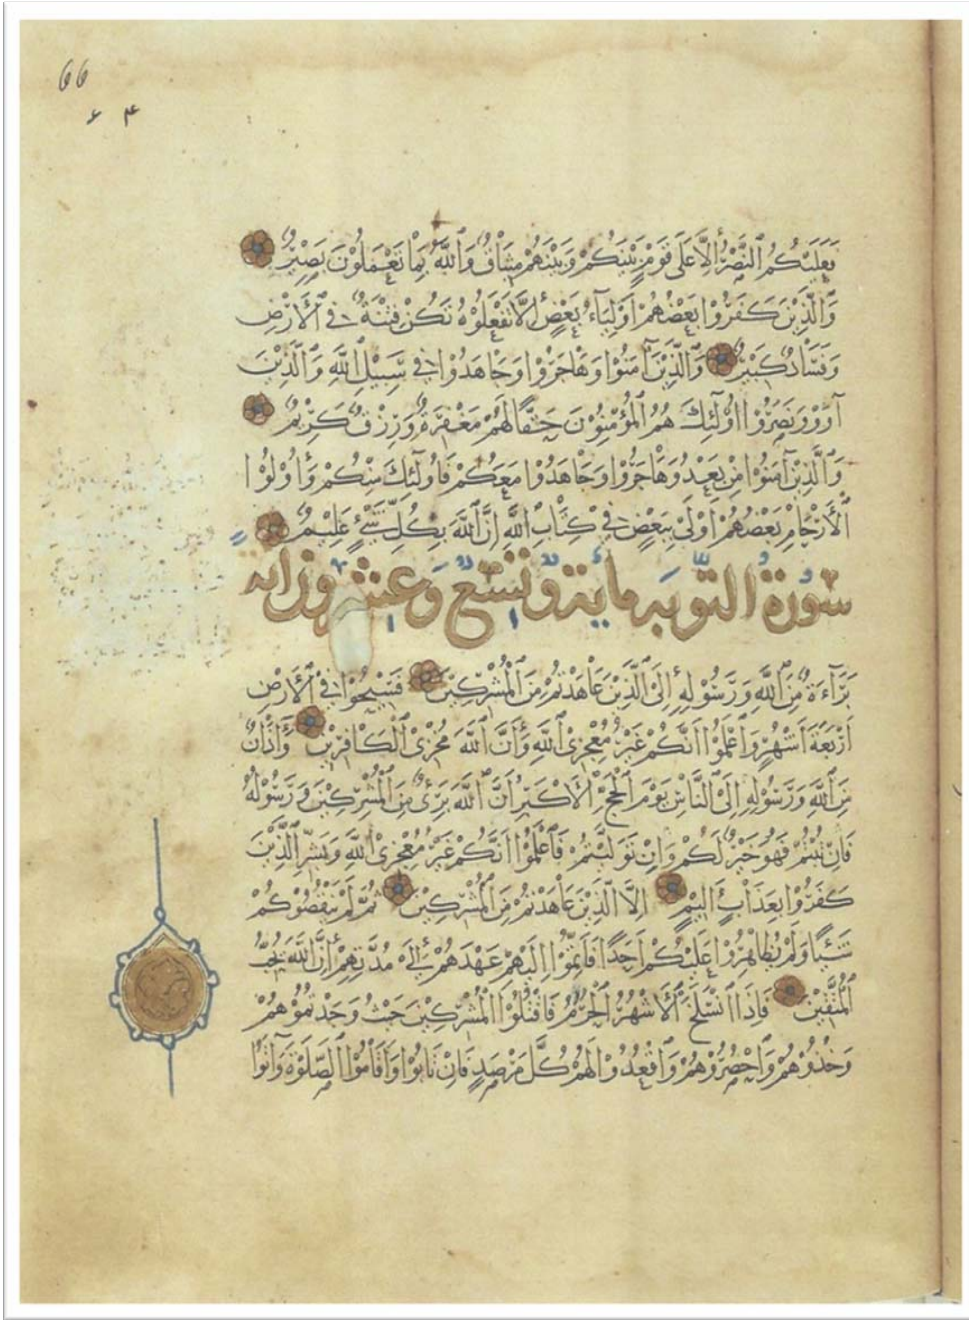 66
فَعَلَيْكُمُ ٱلنَّصْرُ إِلَّا عَلَى قَوْمٍ بَيْنَكُمْ وَبَيْنَهُمْ مِيثَاقٌ وَٱللَّهُ بِمَا تَعْمَلُوْنَ بَصِيْرٌ
وَٱلَّذِيْنَ كَفَرُوْا بَعْضُهُمْ أَوْلِيَآءُ بَعْضٍ إِلَّا تَفْعَلُوْهُ تَكُنْ فِتْنَةٌ فِي ٱلْأَرْضِ
وَفَسَادٌ كَبِيْرٌ وَٱلَّذِيْنَ آمَنُوْا وَهَاجَرُوْا وَجَاهَدُوْا فِي سَبِيْلِ ٱللَّهِ وَٱلَّذِيْنَ
آوَوْا وَنَصَرُوْا اُولَئِكَ هُمُ ٱلْمُؤْمِنُوْنَ حَقًّا لَهُمْ مَغْفِرَةٌ وَرِزْقٌ كَرِيْمٌ
وَٱلَّذِيْنَ آمَنُوْا مِنْ بَعْدُ وَهَاجَرُوْا وَجَاهَدُوْا مَعَكُمْ فَاُولَئِكَ مِنْكُمْ وَأُوْلُوْا
ٱلْأَرْحَامِ بَعْضُهُمْ أَوْلَى بِبَعْضٍ فِي كِتَابِ ٱللَّهِ إِنَّ ٱللَّهَ بِكُلِّ شَيْءٍ عَلِيْمٌ
سُوْرَةُ التَّوبَه مائة وتِسْعٌ وَعِشْرُونَ آيه
بَرَآءَةٌ مِنَ ٱللَّهِ وَرَسُوْلِهِ إِلَى ٱلَّذِيْنَ عَاهَدْتُمْ مِنَ ٱلْمُشْرِكِيْنَ فَسِيْحُوْا فِي ٱلْأَرْضِ
أَرْبَعَةَ أَشْهُرٍ وَٱعْلَمُوْا أَنَّكُمْ غَيْرُ مُعْجِزِي ٱللَّهِ وَأَنَّ ٱللَّهَ مُخْزِي ٱلْكَافِرِيْنَ وَأَذَانٌ
مِنَ ٱللَّهِ وَرَسُوْلِهِ إِلَى ٱلنَّاسِ يَوْمَ ٱلْحَجِّ ٱلْأَكْبَرِ أَنَّ ٱللَّهَ بَرِيْءٌ مِنَ ٱلْمُشْرِكِيْنَ وَرَسُوْلُهُ
فَإِنْ تُبْتُمْ فَهُوَ خَيْرٌ لَكُمْ وَإِنْ تَوَلَّيْتُمْ فَٱعْلَمُوْا أَنَّكُمْ غَيْرُ مُعْجِزِي ٱللَّهِ وَبَشِّرِ ٱلَّذِيْنَ
كَفَرُوْا بِعَذَابٍ أَلِيْمٍ إِلَّا ٱلَّذِيْنَ عَاهَدْتُمْ مِنَ ٱلْمُشْرِكِيْنَ ثُمَّ لَمْ يَنْقُصُوْكُمْ
شَيْئًا وَلَمْ يُظَاهِرُوْا عَلَيْكُمْ أَحَدًا فَأَتِمُّوْا إِلَيْهِمْ عَهْدَهُمْ إِلَى مُدَّتِهِمْ إِنَّ ٱللَّهَ يُحِبُّ
ٱلْمُتَّقِيْنَ فَإِذَا ٱنْسَلَخَ ٱلْأَشْهُرُ ٱلْحُرُمُ فَاقْتُلُوْا ٱلْمُشْرِكِيْنَ حَيْثُ وَجَدْتُمُوْهُمْ
وَخُذُوْهُمْ وَٱحْصُرُوْهُمْ وَٱقْعُدُوْا لَهُمْ كُلَّ مَرْصَدٍ فَإِنْ تَابُوْا وَأَقَامُوْا ٱلصَّلَوٰةَ وَآتَوُا